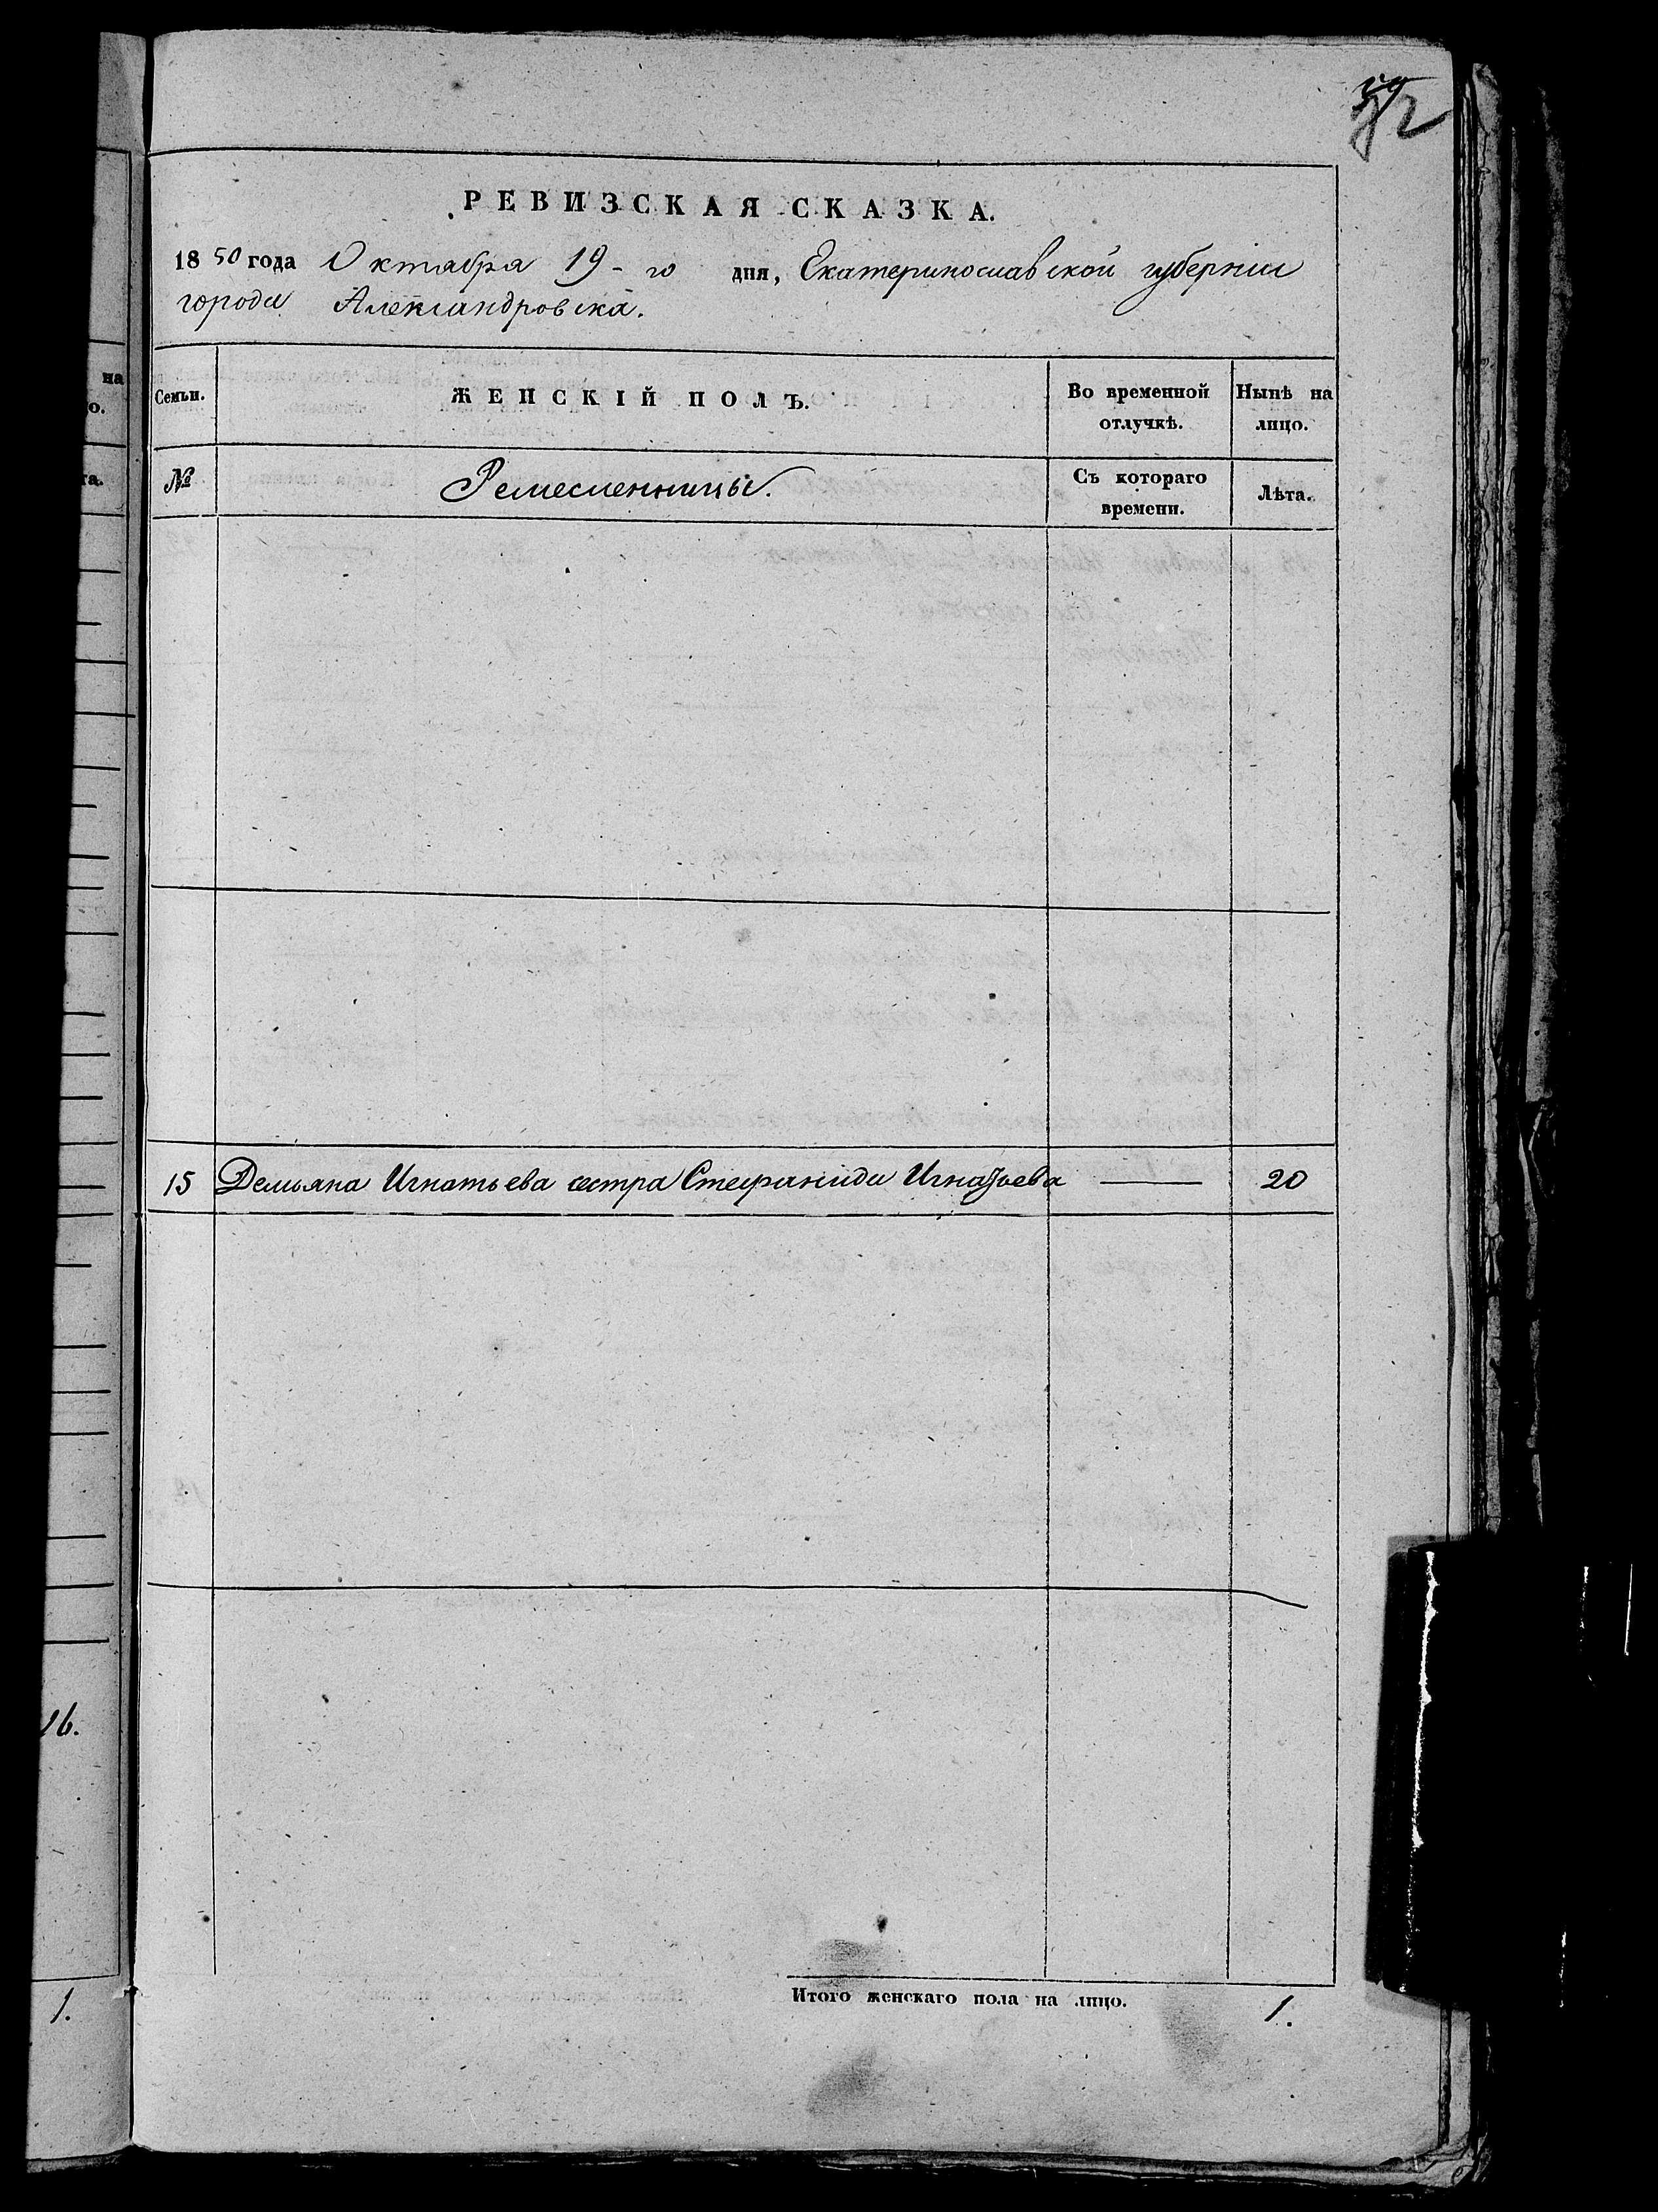 РЕВИЗСКАЯ СКАЗКА.
1850 года Октября 19-го дня, Екатеринославской губернии
города Александровска.
на
о.
Семьи.
ЖЕНСКІЙ ПОЛЪ.
Во временной
отлучкѣ.
Нынѣ на
лицо.
та.
№
Ремесленницы.
Съ котораго
времени.
Лѣта.
15 Демьяна Игнатьева сестра Стефанида Игнатьева — 20
16.
1.
Итого женскаго пола на лицо. 1.